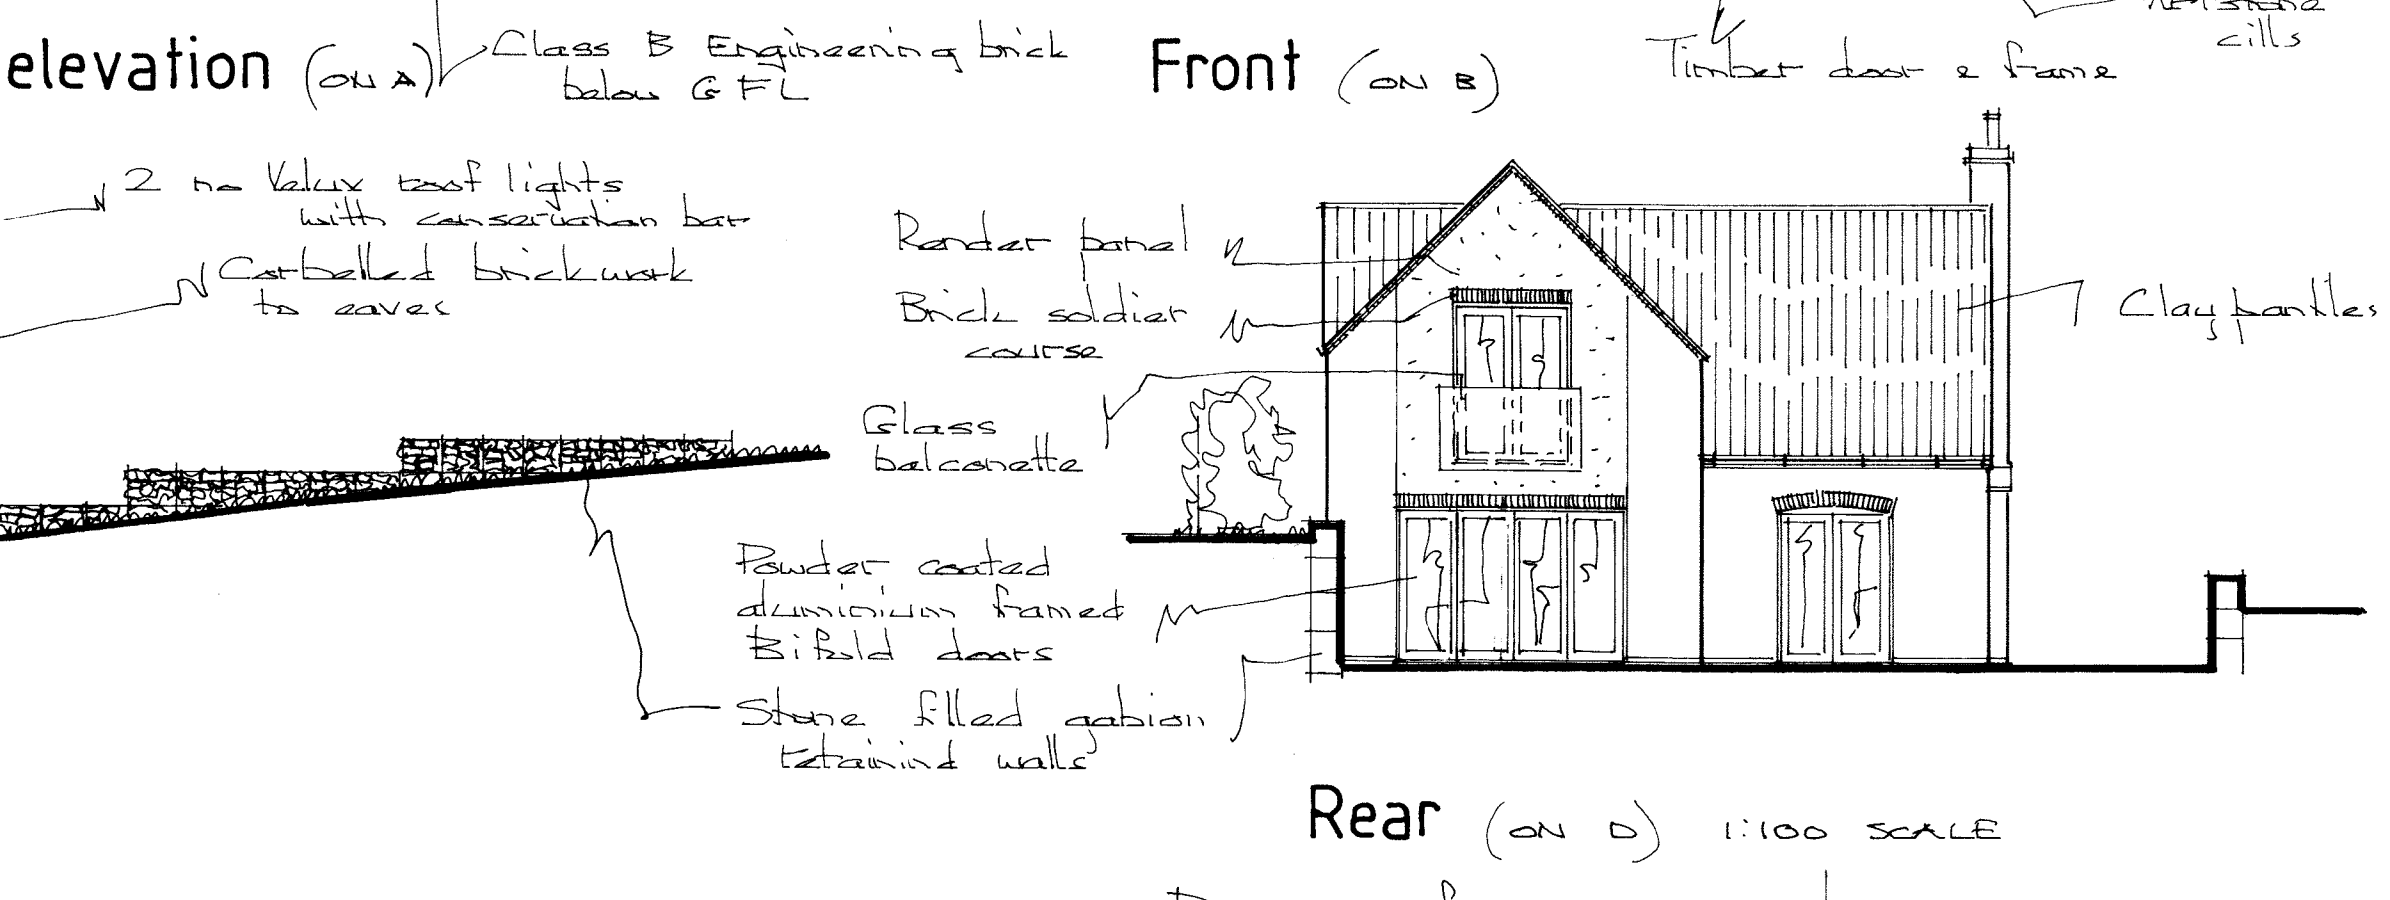 elevation (ON A)
Class B Engineering brick
below GFL
Front (ON B)
Timber door & frame
cills
2 no Velux roof lights
with conservation bar
Corbelled brickwork
to eaves
Render panel
Brick soldier
course
Clay pantiles
Glass
balconette
Powder coated
aluminium framed
Bifold doors
Stone filled gabion
retainind walls
Rear (ON D) 1:100 SCALE